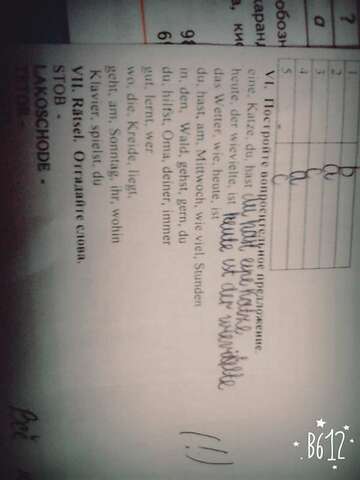 обозн
каранд
а, кис
98
?
а
2 a
3 c
4 a
5 c
VI. Постройте вопросительное предложение.
eine, Katze, du, hast du hast eine katze
heute, der wievielte, ist heute ist der wievielte
das Wetter, wie, heute, ist
du, hast, am, Mittwoch, wie viel, Stunden
in, den, Wald, gehst, gern, du
du, hilfst, Oma, deiner, immer
gut, lernt, wer
wo, die, Kreide, liegt,
geht, am, Sonntag, ihr, wohin
Klavier, spielst, du
(!)
VII. Rätsel. Отгадайте слова.
STOB -
LAKOSCHODE -
B612